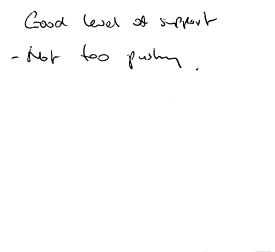 Good level of support
- Not too pushy.